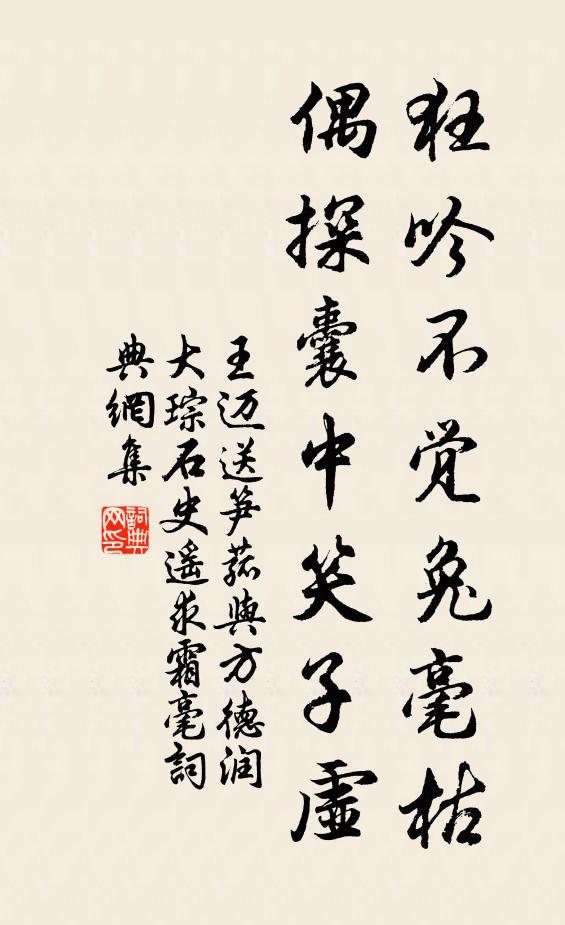 狂吟不觉兔毫枯
偶探囊中笑子虚
王迈送笋菰與方德润
大琮右史遥求霜毫詞
典網集
詞典网印